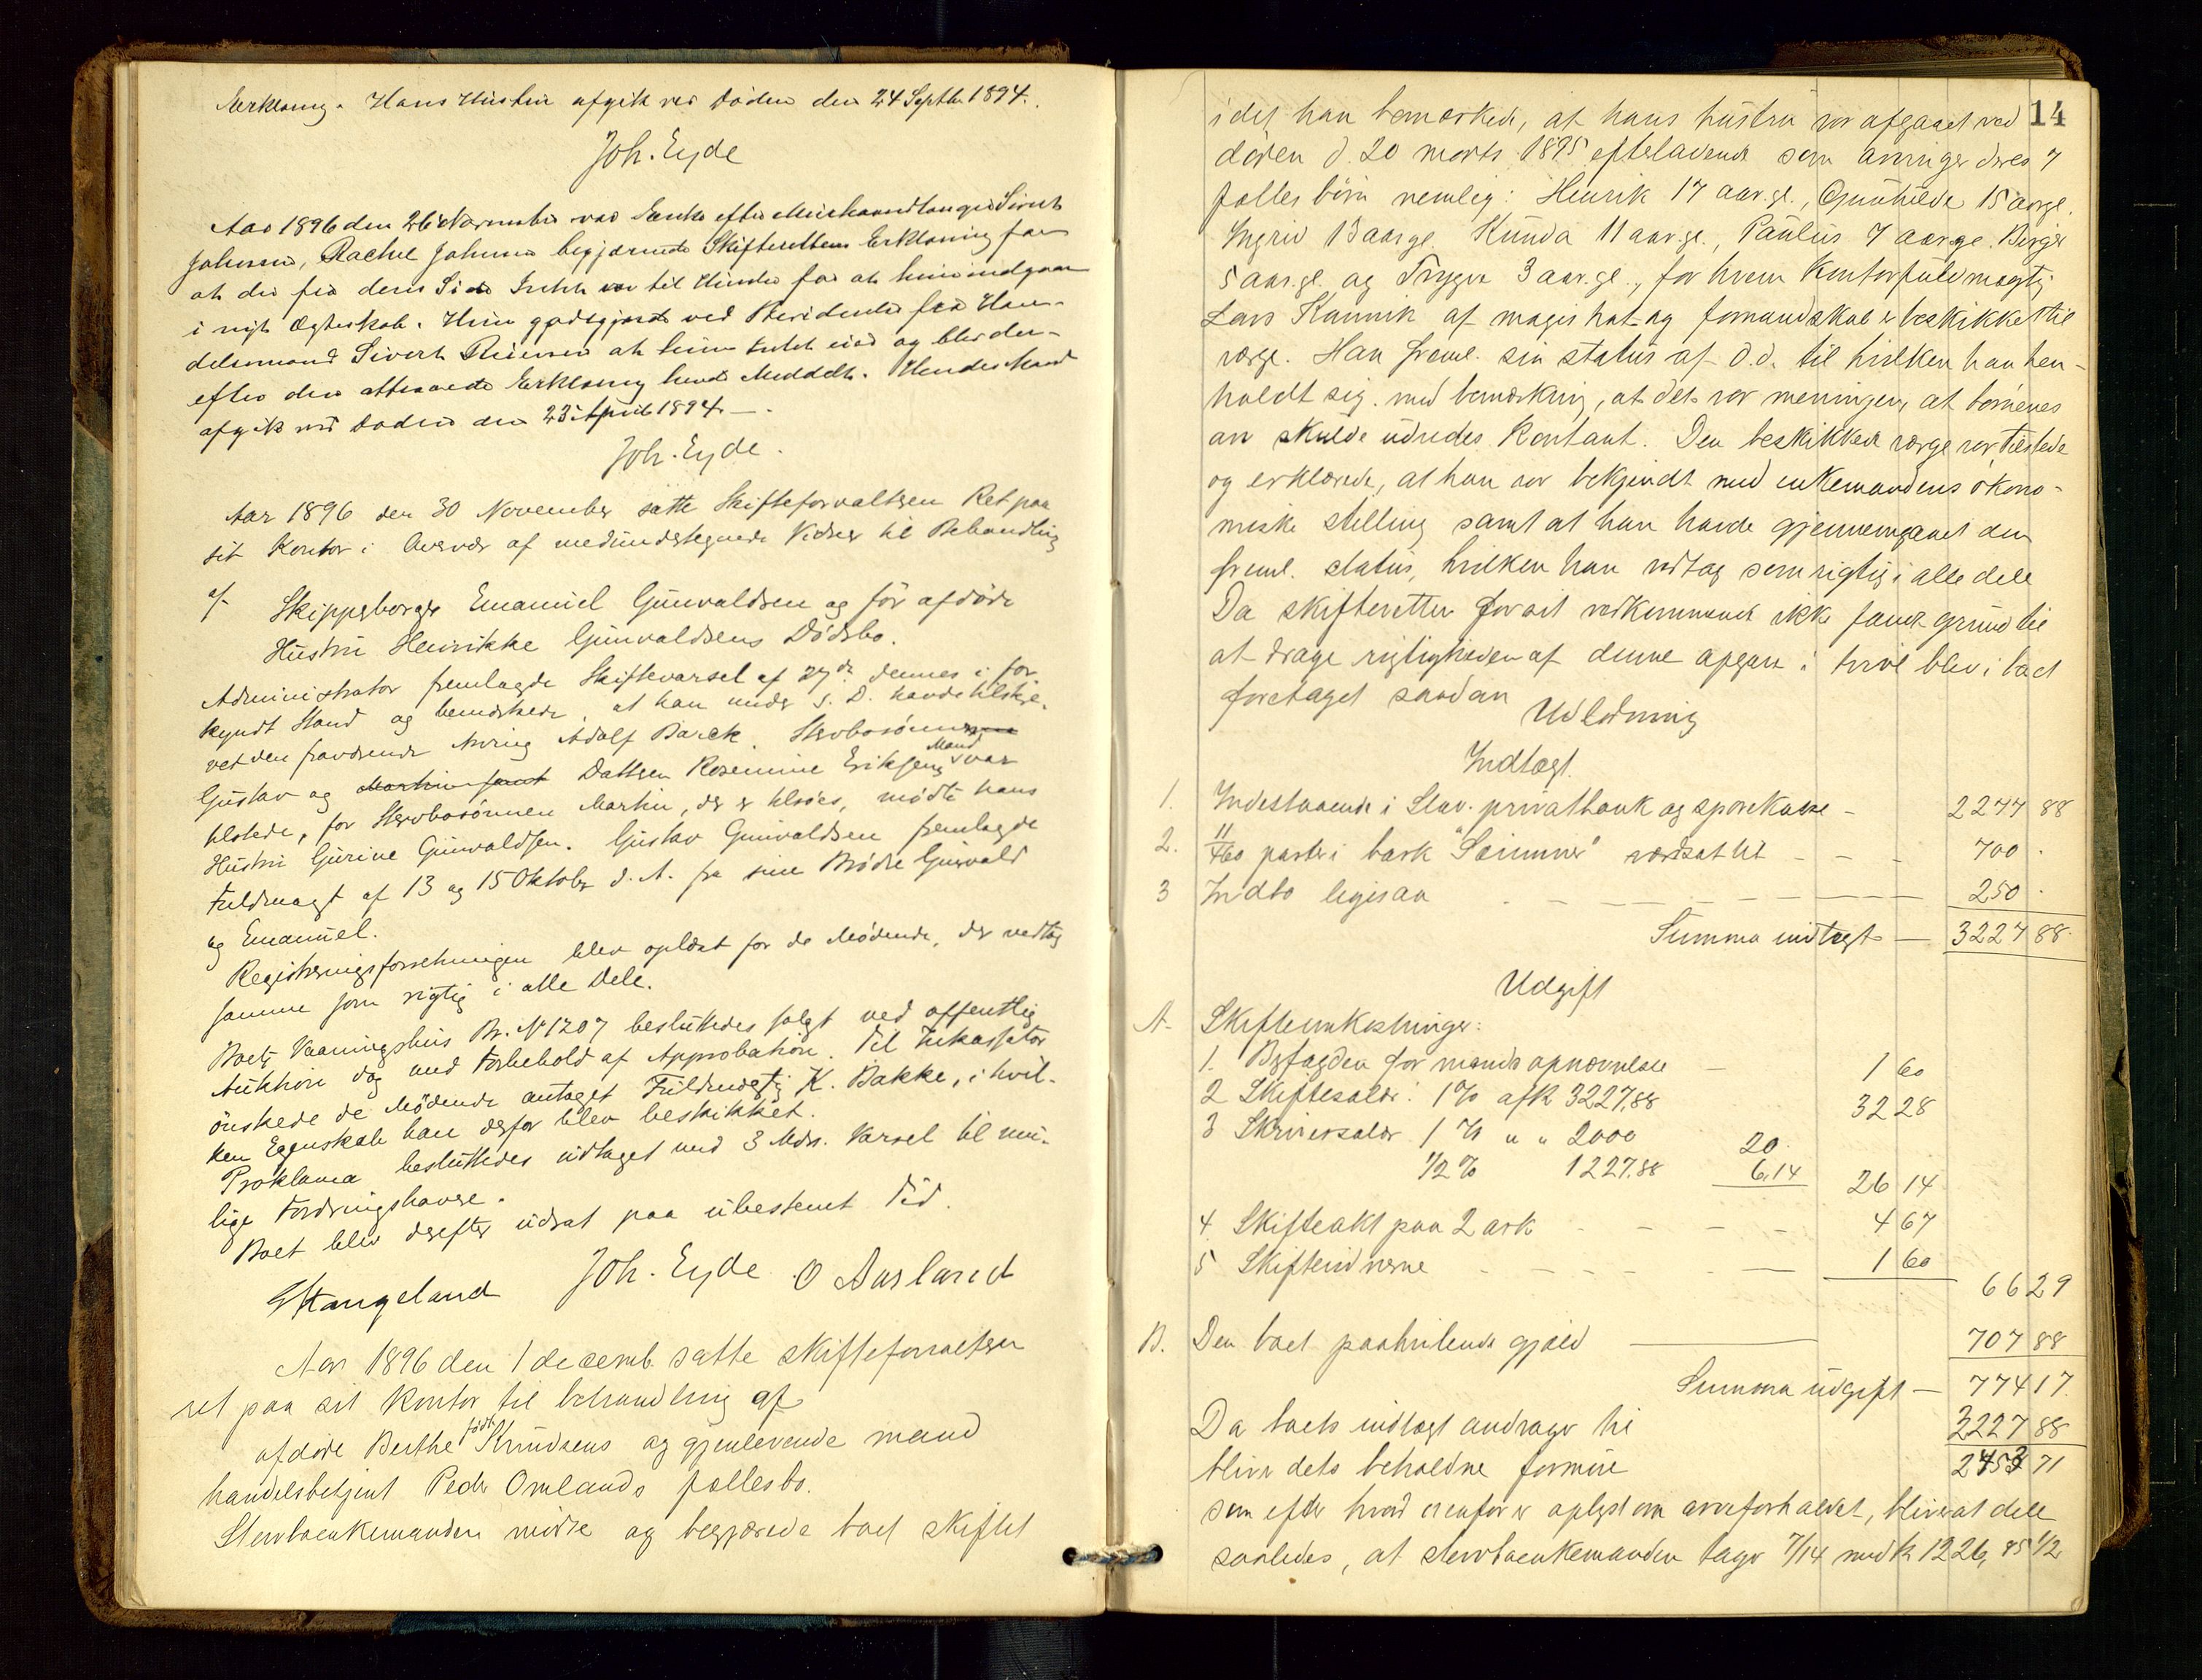 Erklæring. Hans Hustru afgik ved Døden den 24 Septbr 1894.
Joh. Eyde
Aar 1896 den 26 November var Enke efter Sivert
Johnsen, Rachel Johnsen begjærende Skifterettens Erklæring for
at der fra dens Side Intet var til Hinder for at hun indgaar
i nyt Ægteskab. Hun godtgjorde ved Beviidnelse fra Han-
delsmand Sivert at hun Intet eied og blev der-
efter den attraaede Erklæring hende Meddelt. Hendes Mand
afgik ved Døden den 23 April 1894. —
Joh. Eyde.
Aar 1896 den 30 November satte Skifteforvalteren Ret paa
sit Kontor i Overvær af medundertegnede Vidner til Behandling
af
Skipperborger Emanuel Gunvaldsen og før afdøde
Hustru Henrikke Gunvaldsens Dødsbo.
Administrator fremlagde Skiftevarsel af 27de dennes i for-
kyndt Stand og bemærkede, at han under s. D. havde tilskre-
vet den fraværende Arving Adolf Barck. Stervbosønnerne
Gustav og Martin samt Datteren Rosemine Eriksens Mand var
tilstede, for Stervbosønnen Martin, der er tilsøes, mødte hans
Hustru Gurine Gunvaldsen. Gustav Gunvaldsen fremlagde
Fuldmagt af 13 og 15 Oktober d. A. fra sine Brødre Gunvald
og Emanuel.
Registreringsforretningen blev oplæst for de Mødende, der vedtog
samme som rigtig i alle Dele.
Boets Vaaningshus Br. No 1207 besluttedes solgt ved offentlig
Auktion dog med Forbehold af Approbation. Til Inkassator
ønskede de Mødende antaget Fuldmægtig K. Bakke, i hvil-
ken Egenskab han derfor blev beskikket.
Proklama besluttedes udtaget med 3 Mdrs. Varsel til mu-
lige Fordringshavere.
Boet blev derefter udsat paa ubestemt Tid.
Stangeland Joh. Eyde O Aasland
Aar 1896 den 1 decemb. satte skifteforvalteren
ret paa sit kontor til behandling af
afdøde Berthe født Knudsens og gjenlevende mand
handelsbetjent Peder Omlands fællesbo.
Stervboenkemanden mødte og begjærede boet skiftet
14
idet han bemærkede, at hans hustru var afgaaet ved
døden d. 20 marts 1895 efterladende som arvinger deres 7
fælles børn nemlig: Henrik 17 aar gl., Gunhilde 15 aar gl.
Ingrid 13 aar gl. Kunda 11 aar gl., Paulus 7 aar gl. Birger
5 aar gl. og Trygve 3 aar gl., for hvem Kontorfuldmægtig
Lars Kannik af magistrat og formandskab er beskikket til
værge. Han freml. sin status af d.d. til hvilken han hen-
holdt sig med bemærkning, at det var meningen, at børnenes
arv skulde udredes kontant. Den beskikkede værge var tilstede
og erklærede, at han var bekjendt med enkemandens økono-
miske stilling samt at han havde gjennemgaaet den
freml. status, hvilken han vedtog som rigtig i alle dele
Da skifteretten for sit vedkommende ikke fandt grund til
at drage rigtigheden af denne opgave i tvivl blev i boet
foretaget saadan
Udlodning
Indtægt.
1. Indestaaende i Stav. privatbank og sparekasse — 2277 88
2. 11/760 parter i bark "Sauimner" værdsat til - - - 700 .
3 Indbo ligesaa - - - 250 .
Summa indtægt — 3227 88
Udgift
A. Skifteomkostninger:
1. Byfogden for mands opnævnelse — 1 60
2 Skiftesalær: 1 % af k 3227,88 32 28
3 Skriversalær 1 % " " 2000 20.
1/2 % 1227.88 6,14 26 14
4. Skifteakt paa 2 ark - - - - 4 67
5 Skiftevidnerne - - - - 1 60
66 29
B. Den boet paahvilende gjæld — 707 88
Summa udgift — 774 17.
Da boets indtægt andrager til 3227 88
bliver dets beholdne formue 2453 71
som efter hvad ovenfor er oplyst om arveforholdet, bliver at dele
saaledes, at stervboenkemanden tager 7/14 med k 1226, 85 1/2